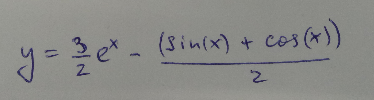 y = \frac{3}{2} e^x - \frac{(sin(x) + cos(x))}{2}